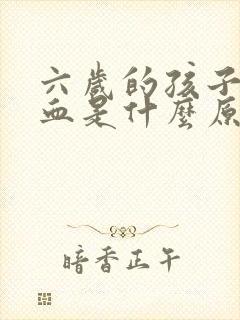 六歲的孩子
血是什麼原
暗香正午